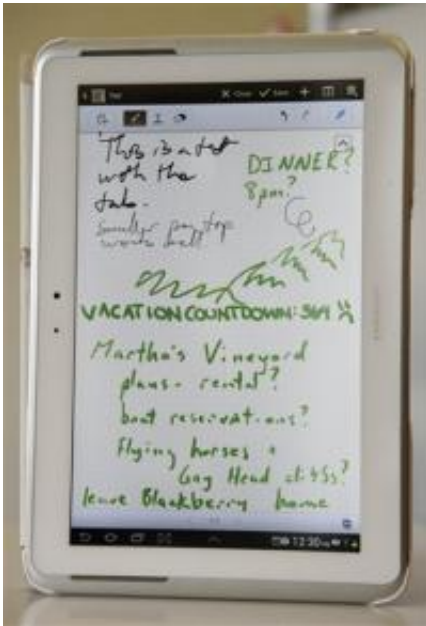 Close Save
This is a test
with the
tab.
smaller pen top
works well
DINNER?
8pm?
VACATION COUNTDOWN: 364
Martha's Vineyard
plans - rental?
boat reservations?
Flying horses +
Gay Head cliffs?
leave Blackberry home
12:30
SAMSUNG